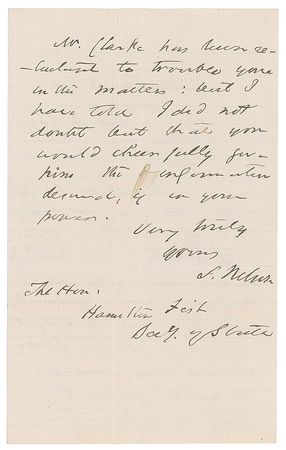 Mr. Clarke has been re-
-luctant to trouble you
in this matter: but I
have told I did not
doubt but that you
would cheerfully give
him the information
desired, if in your
power.
Very truly
yours
S. Nelson
The Hon:
Hamilton Fish
Secy. of State